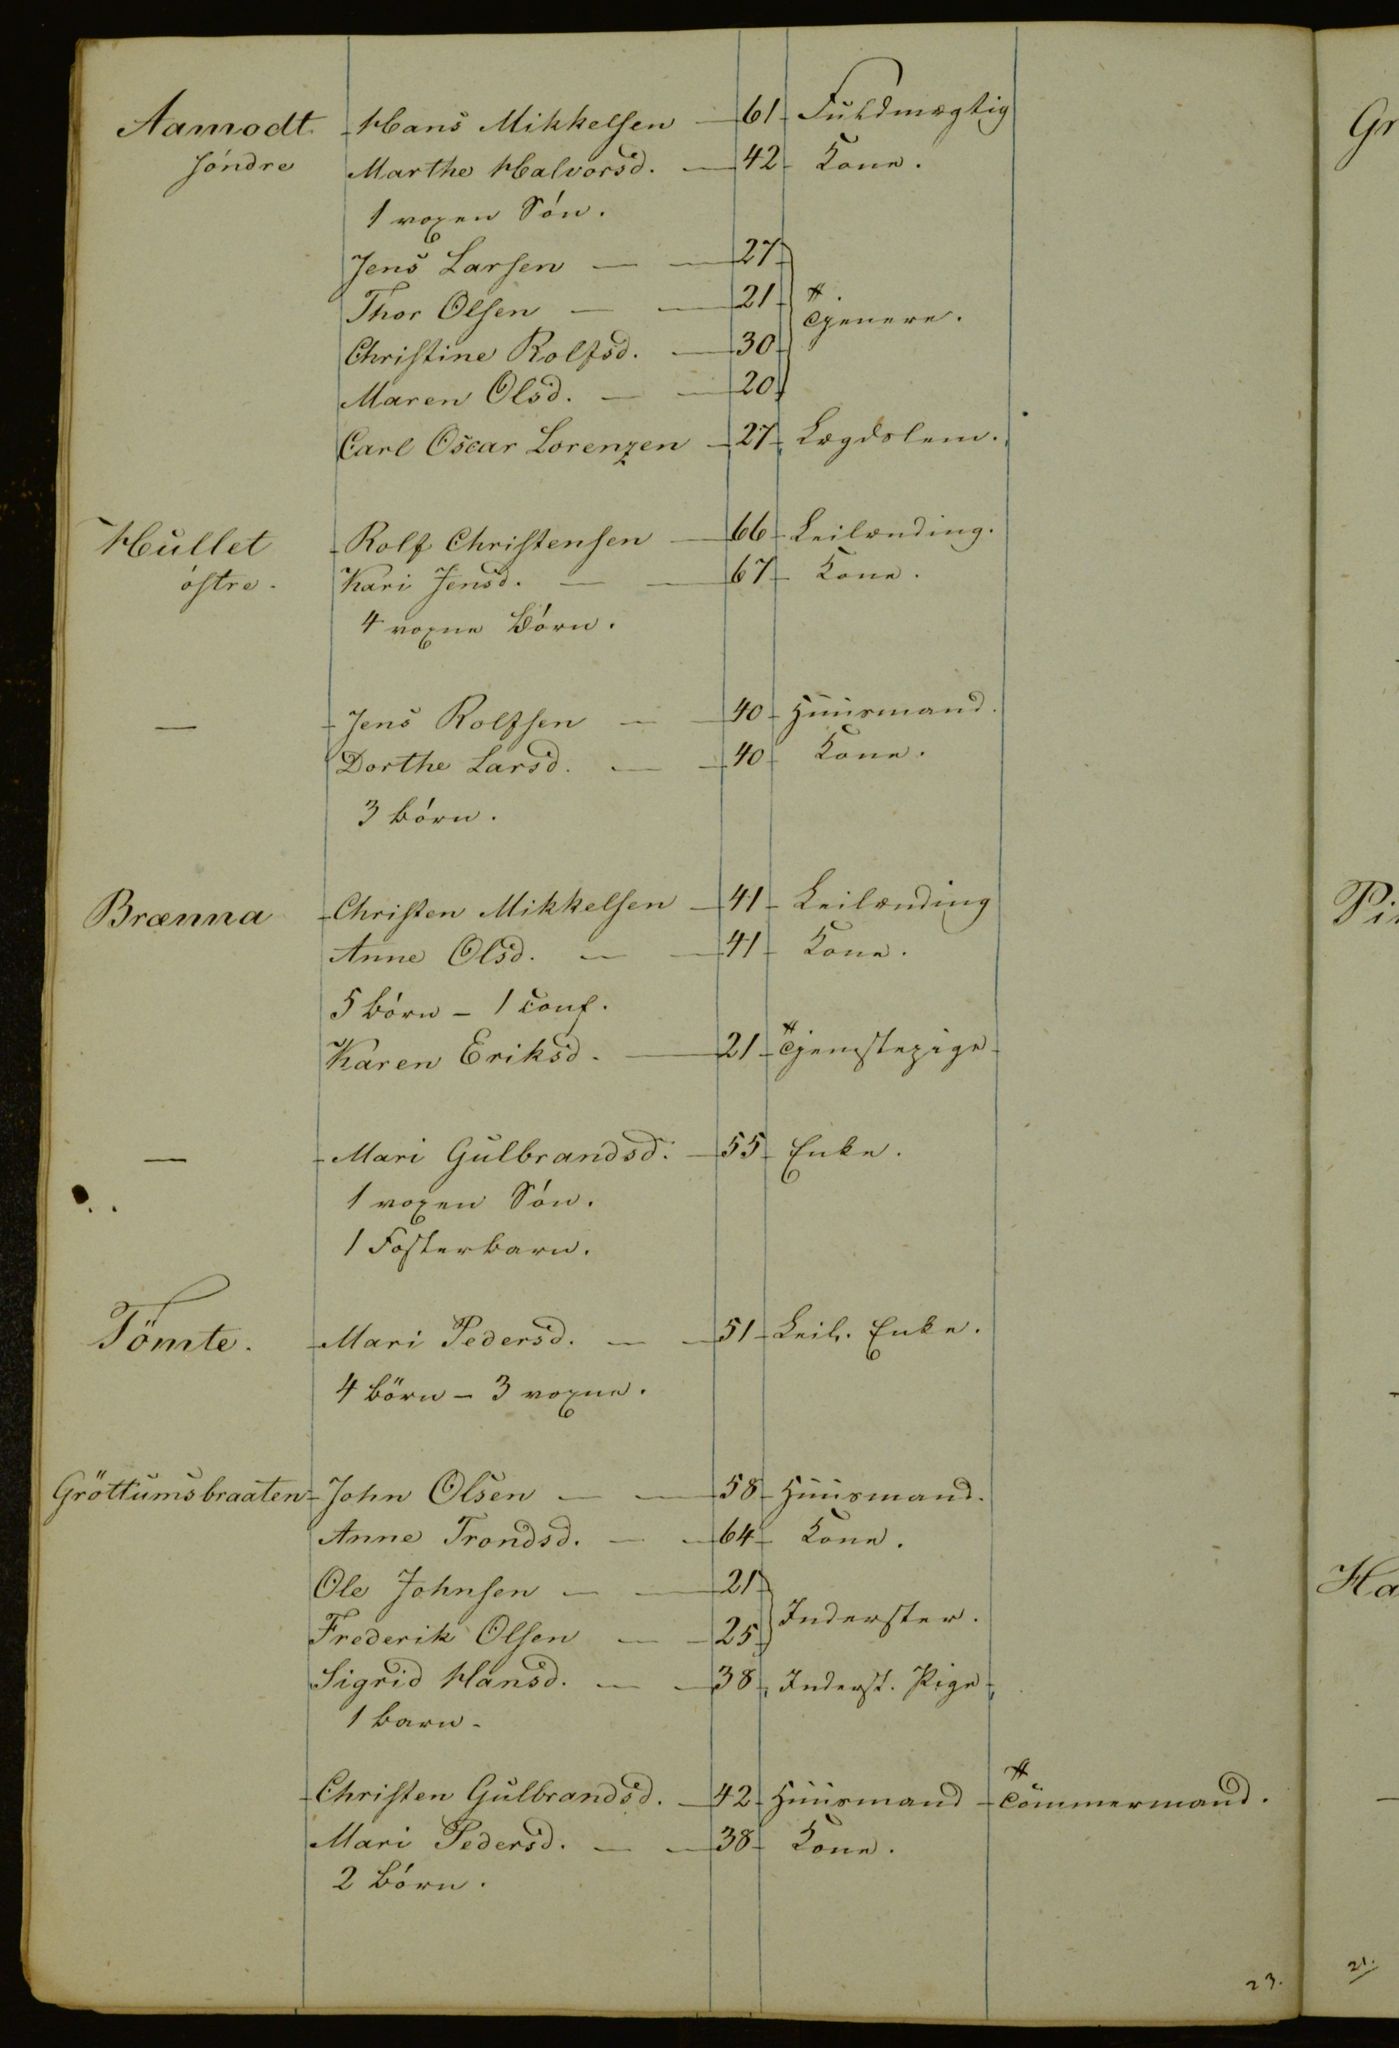 Aamodt - Hans Mikkelsen - 61 - Fuldmægtig
söndre Marthe Halvorsd. - 42 - Kone.
1 voxen Sön.
Jens Larsen - - 27
Thor Olsen - - 21 Tjenere.
Christine Rolfsd. - 30
Maren Olsd. - - 20
Carl Oscar Lorenzen - 27 - Lægdslem.
Hullet - Rolf Christensen - 66 - Leilænding.
östre. Kari Jensd. - - 67 - Kone.
4 voxne Börn.
- - Jens Rolfsen - - 40 - Huusmand.
Dorthe Larsd. - - 40 - Kone.
3 Börn.
Brænna - Christen Mikkelsen - 41 - Leilænding
Anne Olsd. - - 41 - Kone.
5 Börn - 1 Conf.
Karen Eriksd. - 21 - Tjenestepige -
- - Mari Gulbrandsd. - 55 - Enke.
1 voxen Sön.
1 Fosterbarn.
Tömte. - Mari Pedersd. - - 51 - Leil. Enke.
4 Börn - 3 voxne.
Gröttumsbraaten - John Olsen - - 58 - Huusmand.
Anne Trondsd. - - 64 - Kone.
Ole Johnsen - - 21
Frederik Olsen - - 25 Inderster.
Sigrid Hansd. - - 38 - Inderst. Pige -
1 Barn -
- Christen Gulbrandsd. - 42 - Huusmand - Tömmermand.
Mari Pedersd. - - 38 - Kone.
2 Börn.
23.
Gr
Pi
Ha
21.